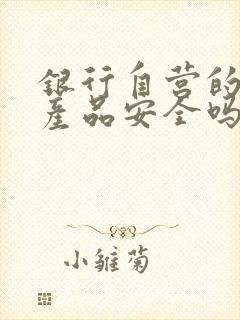 银行自营的
產品安全吗
小雏菊